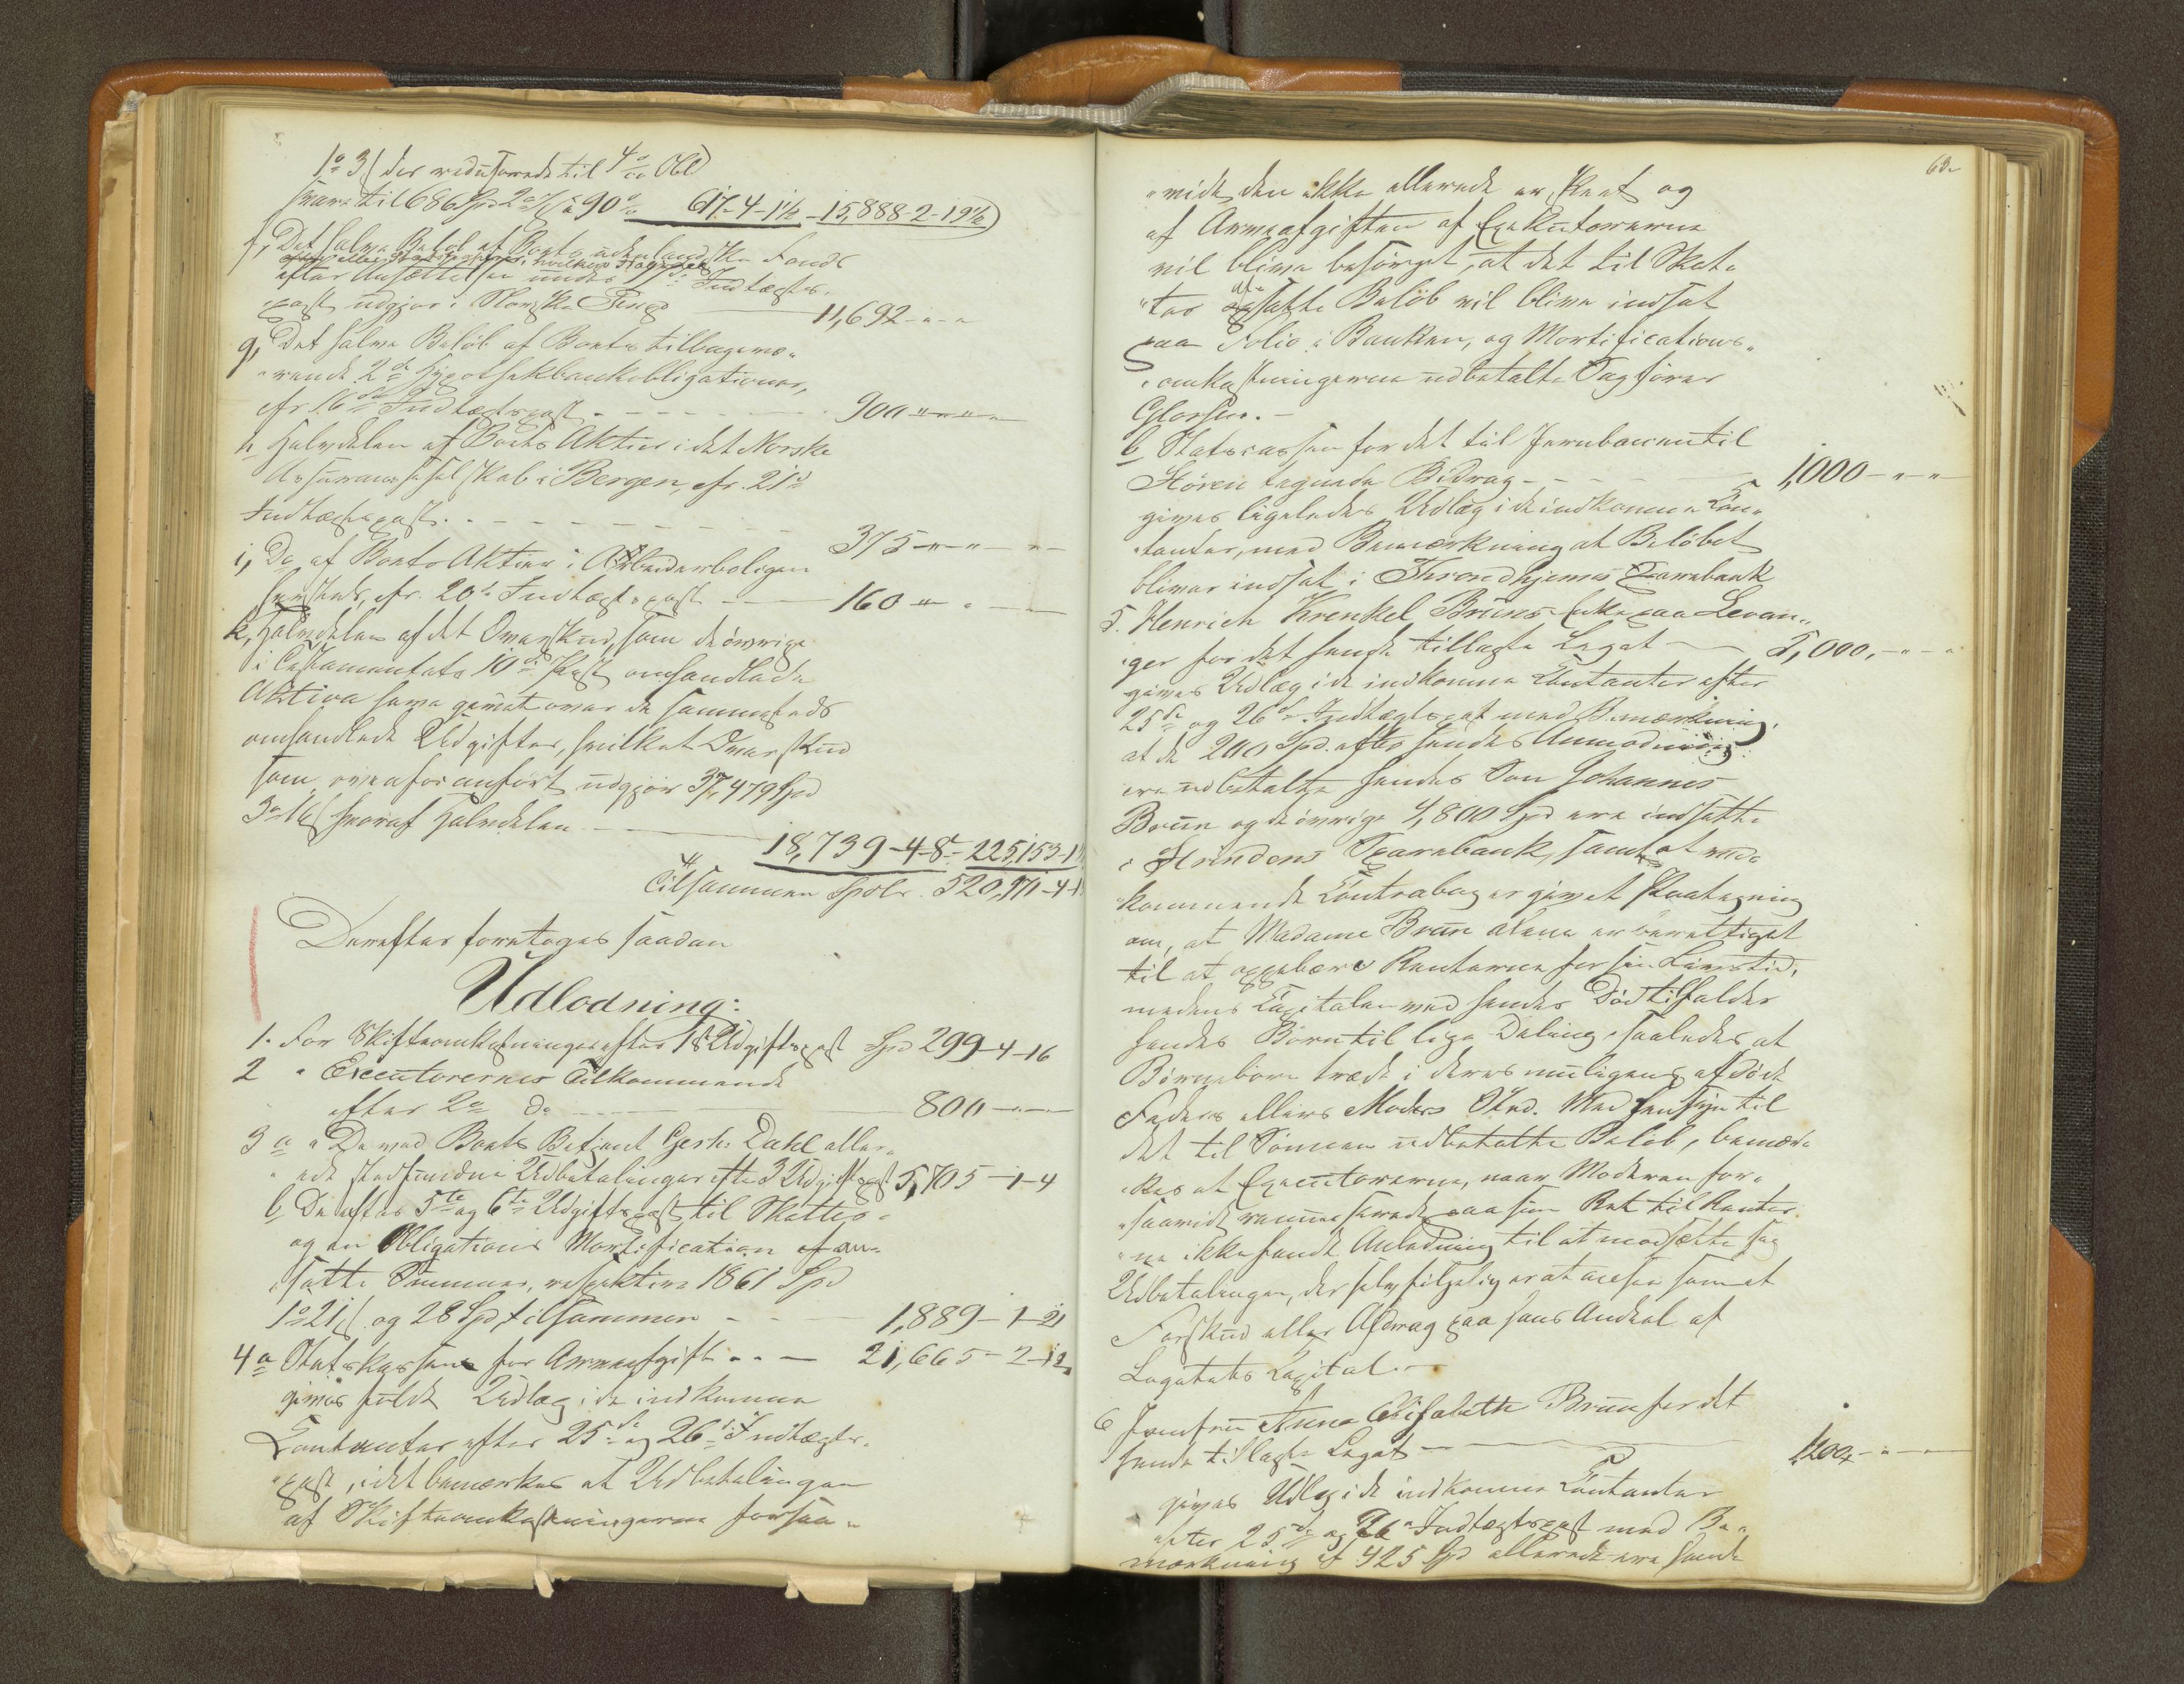 1 o 3 ß der reduserede til 4 % Obl
svare til 686 Spd 2 o 7 ß à 90 % 617-4-1½ - 15,888-2-19½
f, Det halve Beløb af Boets udenlandske Fonds
efter Ansættelsen under 17de Indtægts-
post udgjør i Norske Penge 11,692-"-"
g, Det halve Beløb af Boets tilbagevæ-
"rende 2de Hypothekbankobligationer,
cfr. 16de Indtægtspost - 900 "-"-"
h Halvdelen af Boets Aktier i det Norske
Assuranceselskab i Bergen, cfr. 21de
Indtægtspost. - 375-"-"
i, Do af Boets Aktier i Arbeiderboligen
hersteds, cfr. 20de Indtægtspost 160-"-"
k, Halvdelen af det Overskud, som de øvrige
i Testamentets 10de Post omhandlede
Aktiva have givet over de sammesteds
omhandlede Udgifter, hvilket Overskud
som ovenfor anført udgjør 37,479 Spd
3 o 16 ß hvoraf Halvdelen 18,739-4-8. - 225,153-1
Tilsammen Spdlr. 520,911-4-1
Derefter foretoges saadan
Udlodning:
1. For Skifteomkostninger efter 1ste Udgiftspost Spd 299-4-16
2 " Executorernes Tilkommende
efter 2de do 800-"-"
3 a " De ved Boets Betjent Gerh: Dahl aller-
"ede stedfundne Udbetalinger efter 3 Udgiftspost 5,705-1-4
b De efter 5te og 6te Udgiftspost til Skatter
og en Obligations Mortification afsatte
satte Summer, respektive 1861 Spd
1 o 21 ß og 28 Spd tilsammen - 1,889-1-21
4 a Statskassen for Arveafgift - 21,665-2-12
gives fuldt Udlæg i de indkomne
Contanter efter 25de og 26de Indtægts-
"post, idet bemærkes at Udbetalingen
af Skifteomkostningerne forsaa-
63.
"vidt den ikke allerede er skeet og
af Arveafgiften af Exekutorerne
vil blive besørget, at det til Skat-
"ter afsatte Beløb vil blive indsat
paa Folio i Banken, og Mortifications-
"omkostningerne udbetalte Sagfører
b, Statscassen for det til Jernbanen til
Støren tegnede Bidrag - 1,000-"-"
gives ligeledes Udlæg i de indkomne Con-
"tanter, med Bemærkning at Beløbet
bliver indsat i Throndhjems Sparebank
5. Henrich Krenkel Bruns Enke paa Levan-
"ger for det hende tillagte Legat 5,000.-"-"
gives Udlæg i de indkomne Contanter efter
25de og 26de Indtægtspost med Bemærkning,
at de 200 Spd. efter hendes Anmodning
ere udbetalte hendes Søn Johannes
Brun og de øvrige 4,800 Spd ere indsatte
i Strindens Sparebank, samt at ved-
kommende Contrabog er givet Paategning
om, at Madame Brun alene er berettiget
til at oppebære Renterne for sin Livstid,
medens Capitalen ved hendes Død tilfalder
hendes Børn til lige Deling, saaledes at
Børnebørn træde i deres muligens afdøde
Faders eller Moders Sted. Med Hensyn til
det til Sønnen udbetalte Beløb, bemær-
"kes at Executorerne, naar Moderen for-
"saavidt renuncerede paa sin Ret til Renter-
"ne ikke fandt Anledning til at modsætte sig
Udbetalingen, der selvfølgelig er at ansee som et
Forskud eller Afdrag paa hans Andeel af
Legatets Capital. -
6 Jomfru Anna Elisabeth Brun for det
hende tillagte Legat - 1200,-"-"
gives Udlæg i de indkomne Contanter
efter 25de og 26de Indtægtspost med Be-
mærkning at 425 Spd allerede ere hende